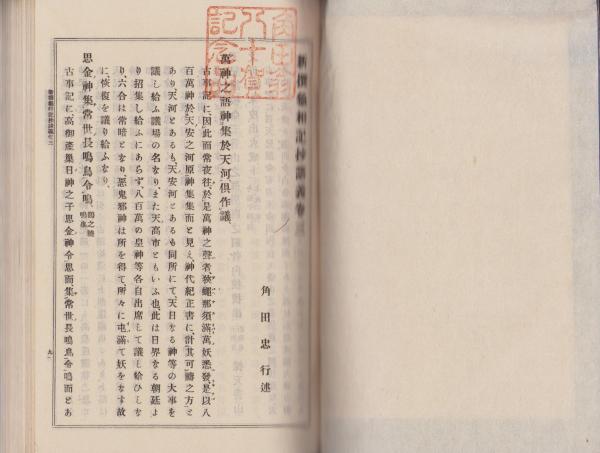 角田忠行述
萬神之語神集於天河倶作議
古事記に、因此而常夜往、於是萬神之聲者狹蠅那須滿萬妖悉發、是以八
百萬神於天安之河原神集集而と見え、神代紀正書に、計其可禱之方と
あり、天河とあるも、天安河とあるも同所にて、天日なる神等の大事を
議し給ふ議場の名なり、また天高市ともいふ也、此は日界なる朝廷よ
り招集し給ふにあらず、八百萬の皇神等各自出席して議し給ひしな
り、六合は常暗となり惡鬼邪神は所を得て、所々に屯滿て妖をなす故
に、恢復を議り給ふなり、
思金神集常世長鳴鳥令鳴
古事記に、高御產巢日神之子思金神令思而、集常世長鳴鳥令鳴而とあ